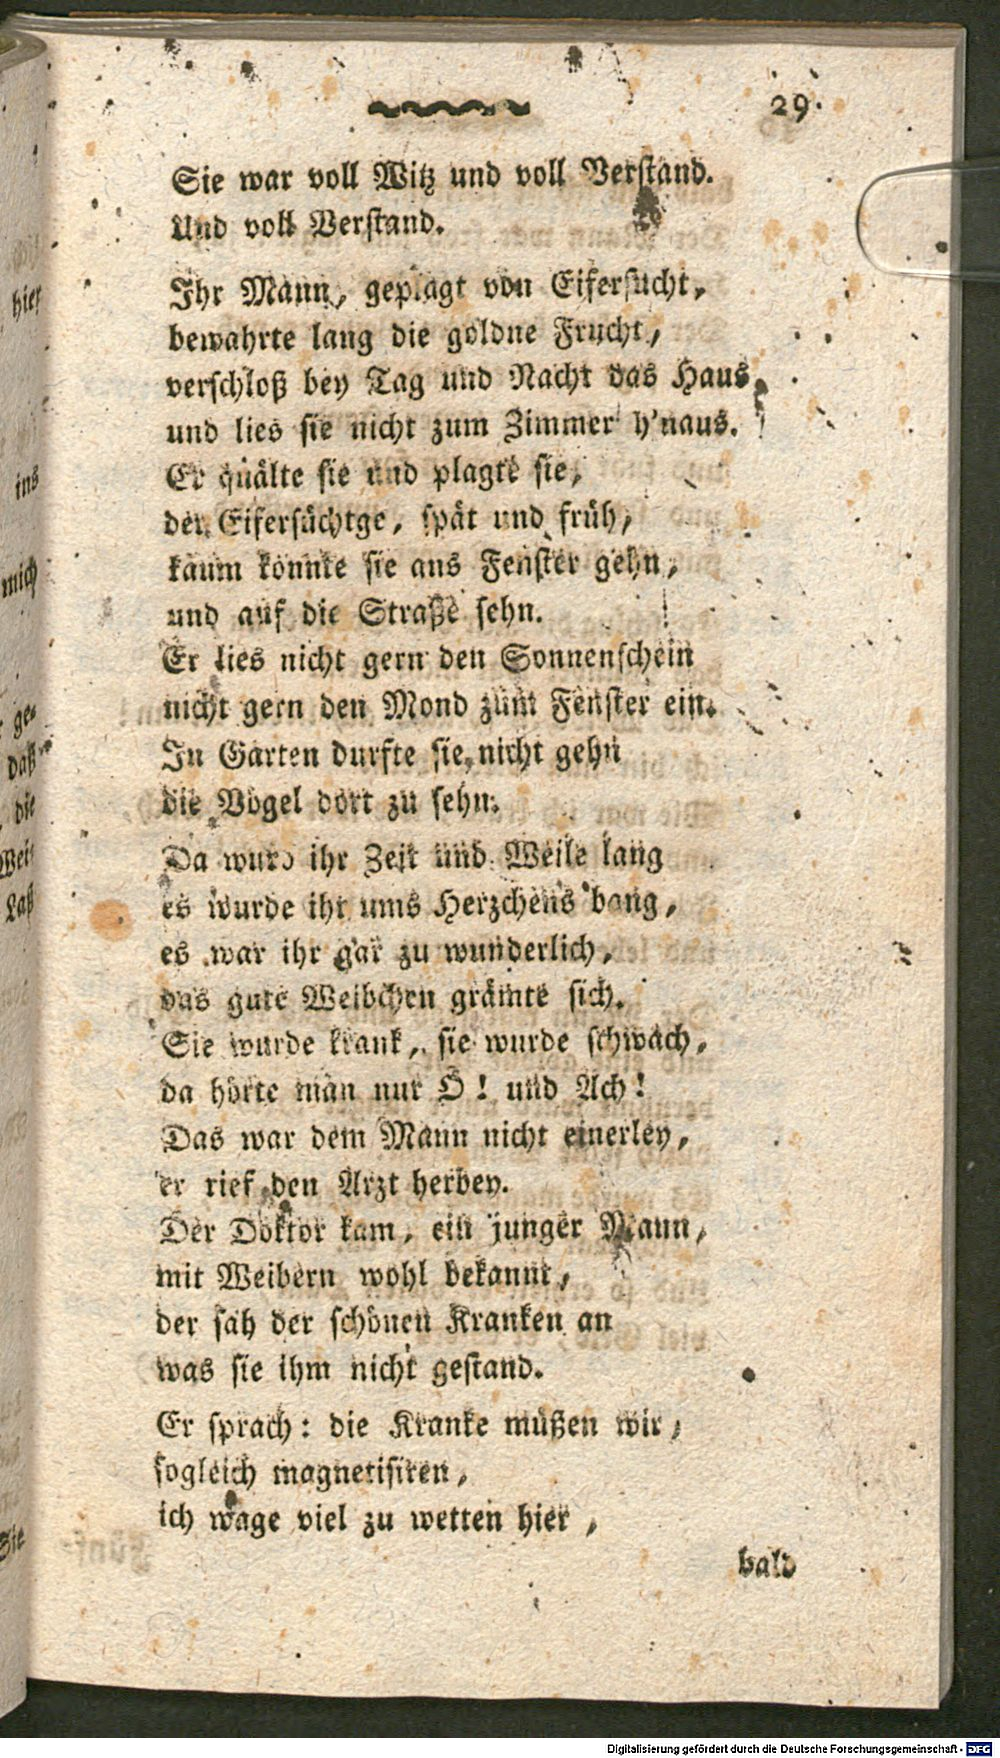 29.
Sie war voll Witz und voll Verstand.
Und voll Verstand.
Ihr Mann, geplagt von Eifersucht,
bewahrte lang die goldne Frucht,
verschloß bey Tag und Nacht das Haus,
und lies sie nicht zum Zimmer h'naus.
Er quälte sie und plagte sie,
der Eifersüchtge, spät und früh,
kaum konnte sie ans Fenster gehn,
und auf die Straße sehn.
Er lies nicht gern den Sonnenschein
nicht gern den Mond zum Fenster ein.
In Garten durfte sie nicht gehn
die Vögel dort zu sehn.
Da wurd ihr Zeit und Weile lang
es wurde ihr ums Herzchens bang,
es war ihr gar zu wunderlich,
das gute Weibchen grämte sich.
Sie wurde krank, sie wurde schwach,
da hörte man nur O! und Ach!
Das war dem Mann nicht einerley,
er rief den Arzt herbey.
Der Doktor kam, ein junger Mann,
mit Weibern wohl bekannt,
der sah der schönen Kranken an
was sie ihm nicht gestand.
Er sprach: die Kranke müßen wir,
sogleich magnetisiren,
ich wage viel zu wetten hier,
bald
hier
ins
mich
ge-
daß
die
Laß
Sie
Digitalisierung gefördert durch die Deutsche Forschungsgemeinschaft - DFG